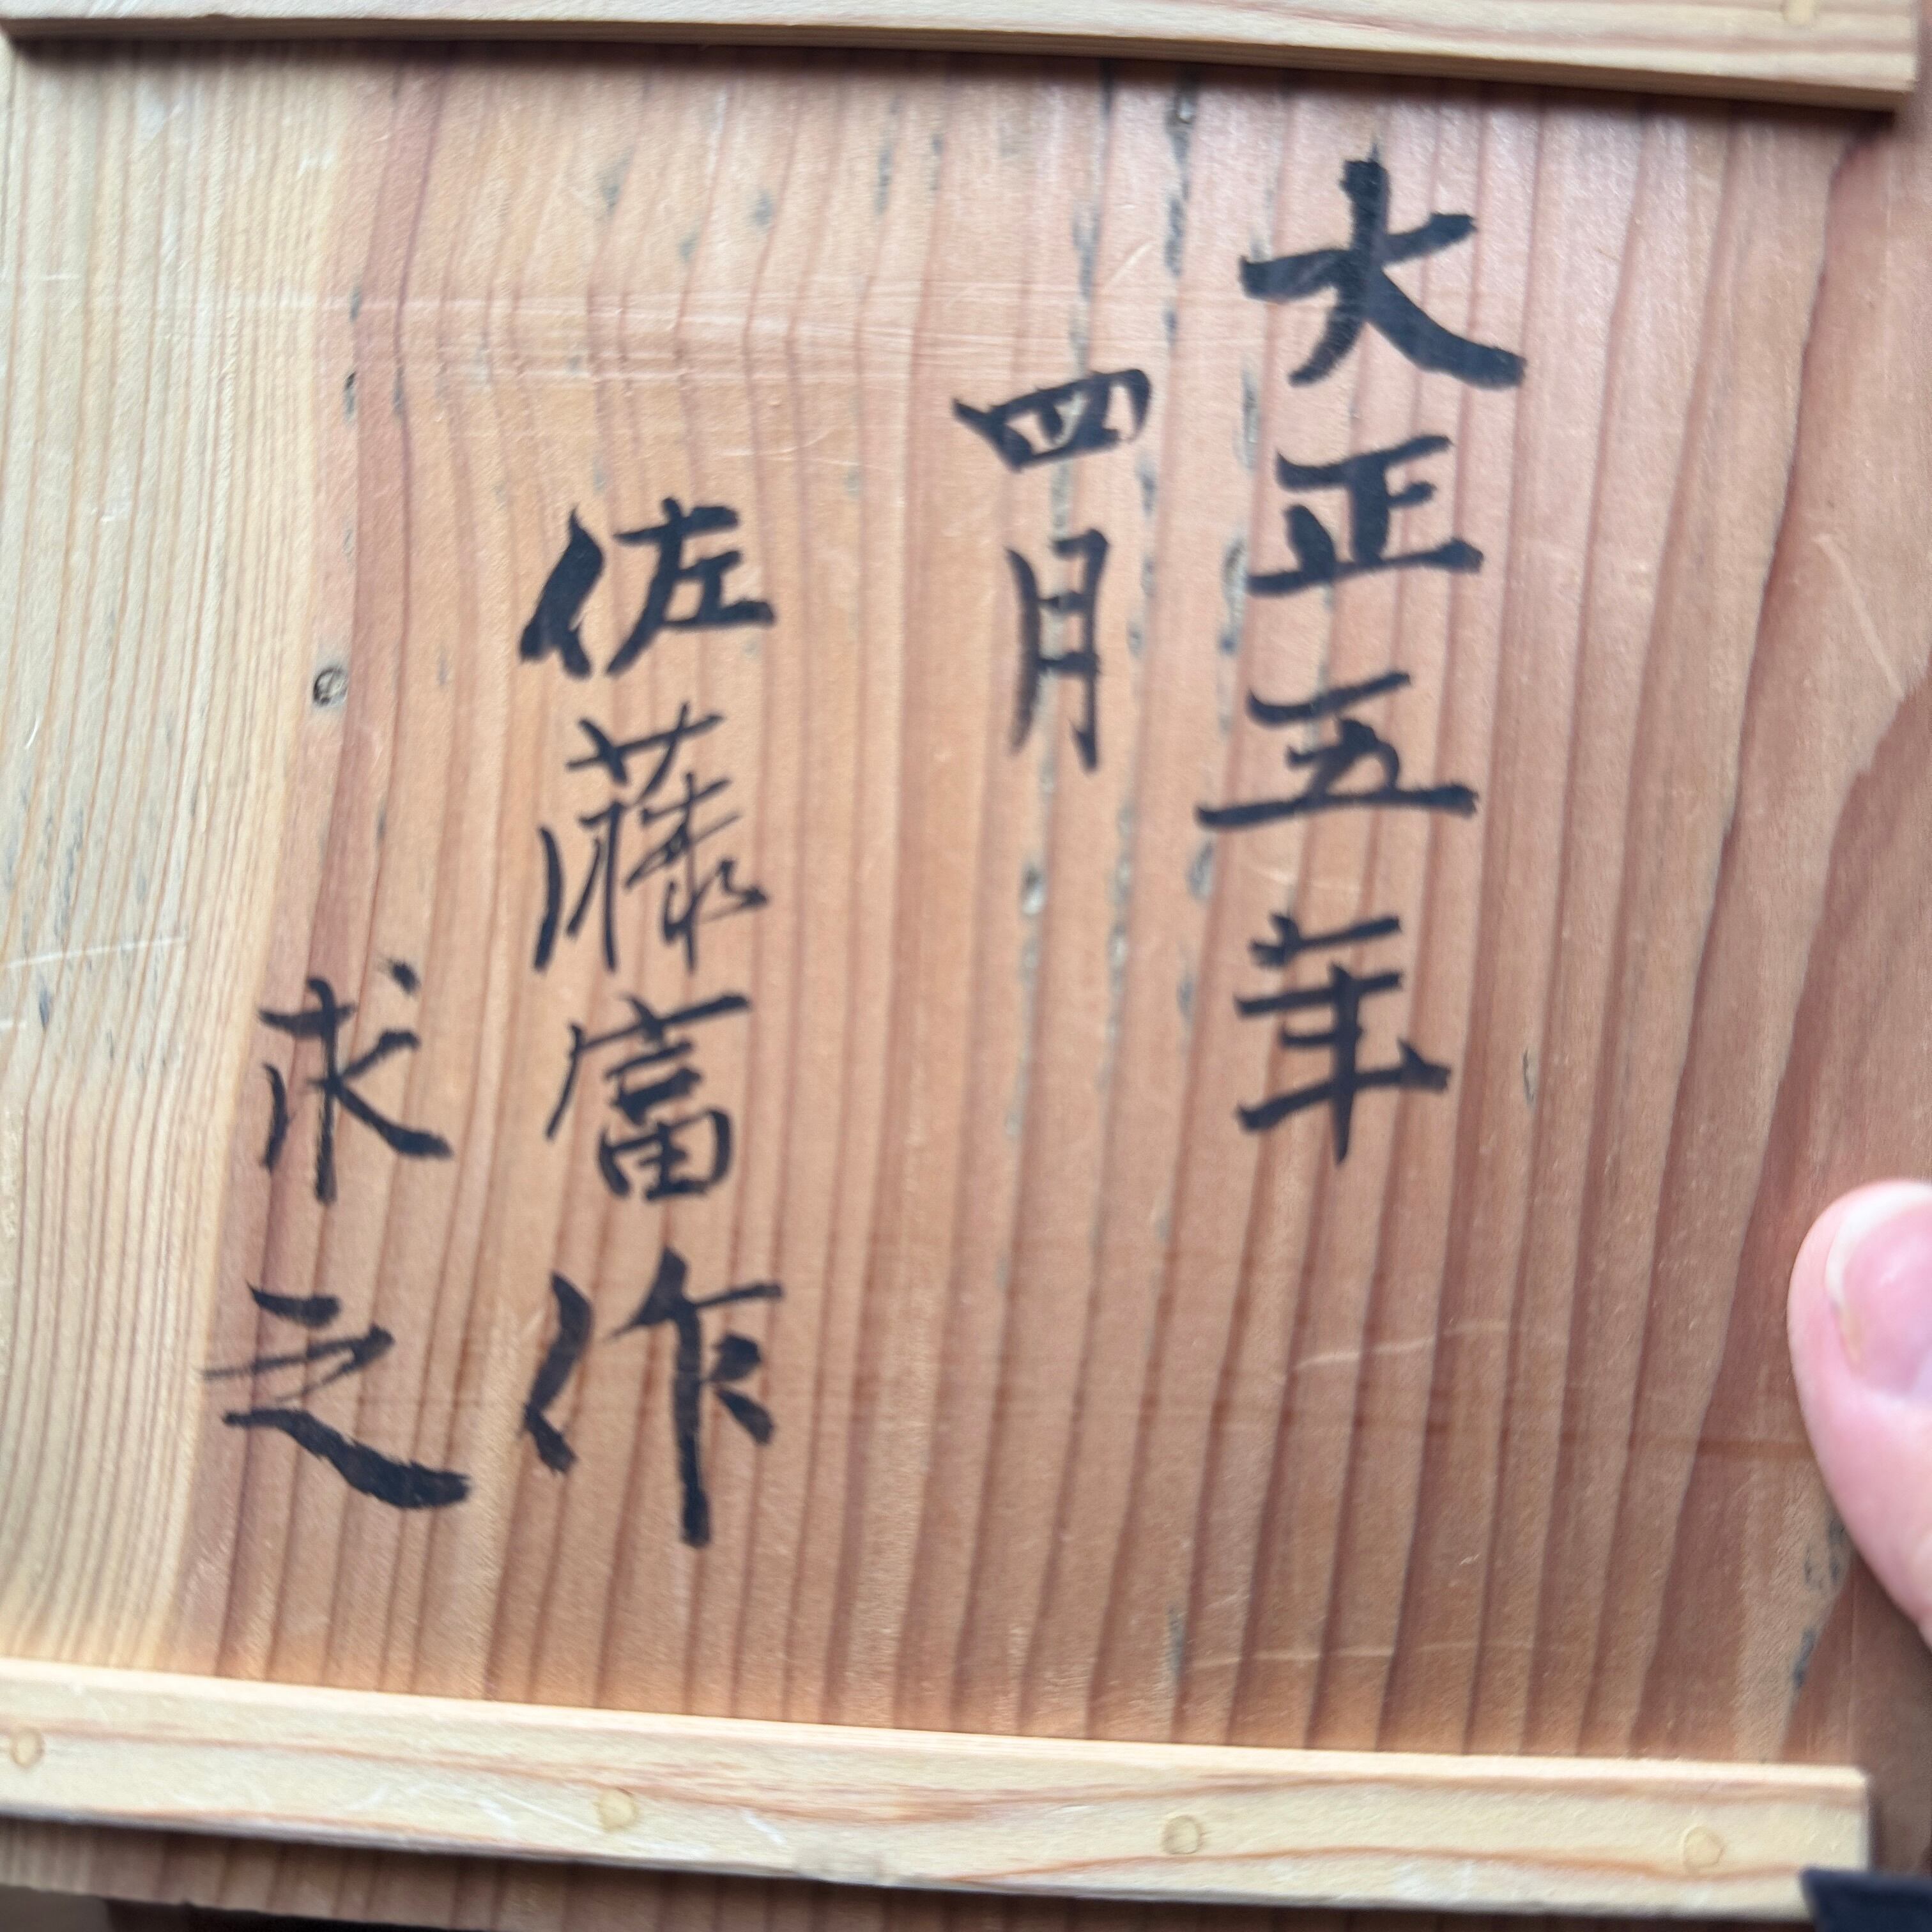 大正五年
四月
佐藤富作
求之